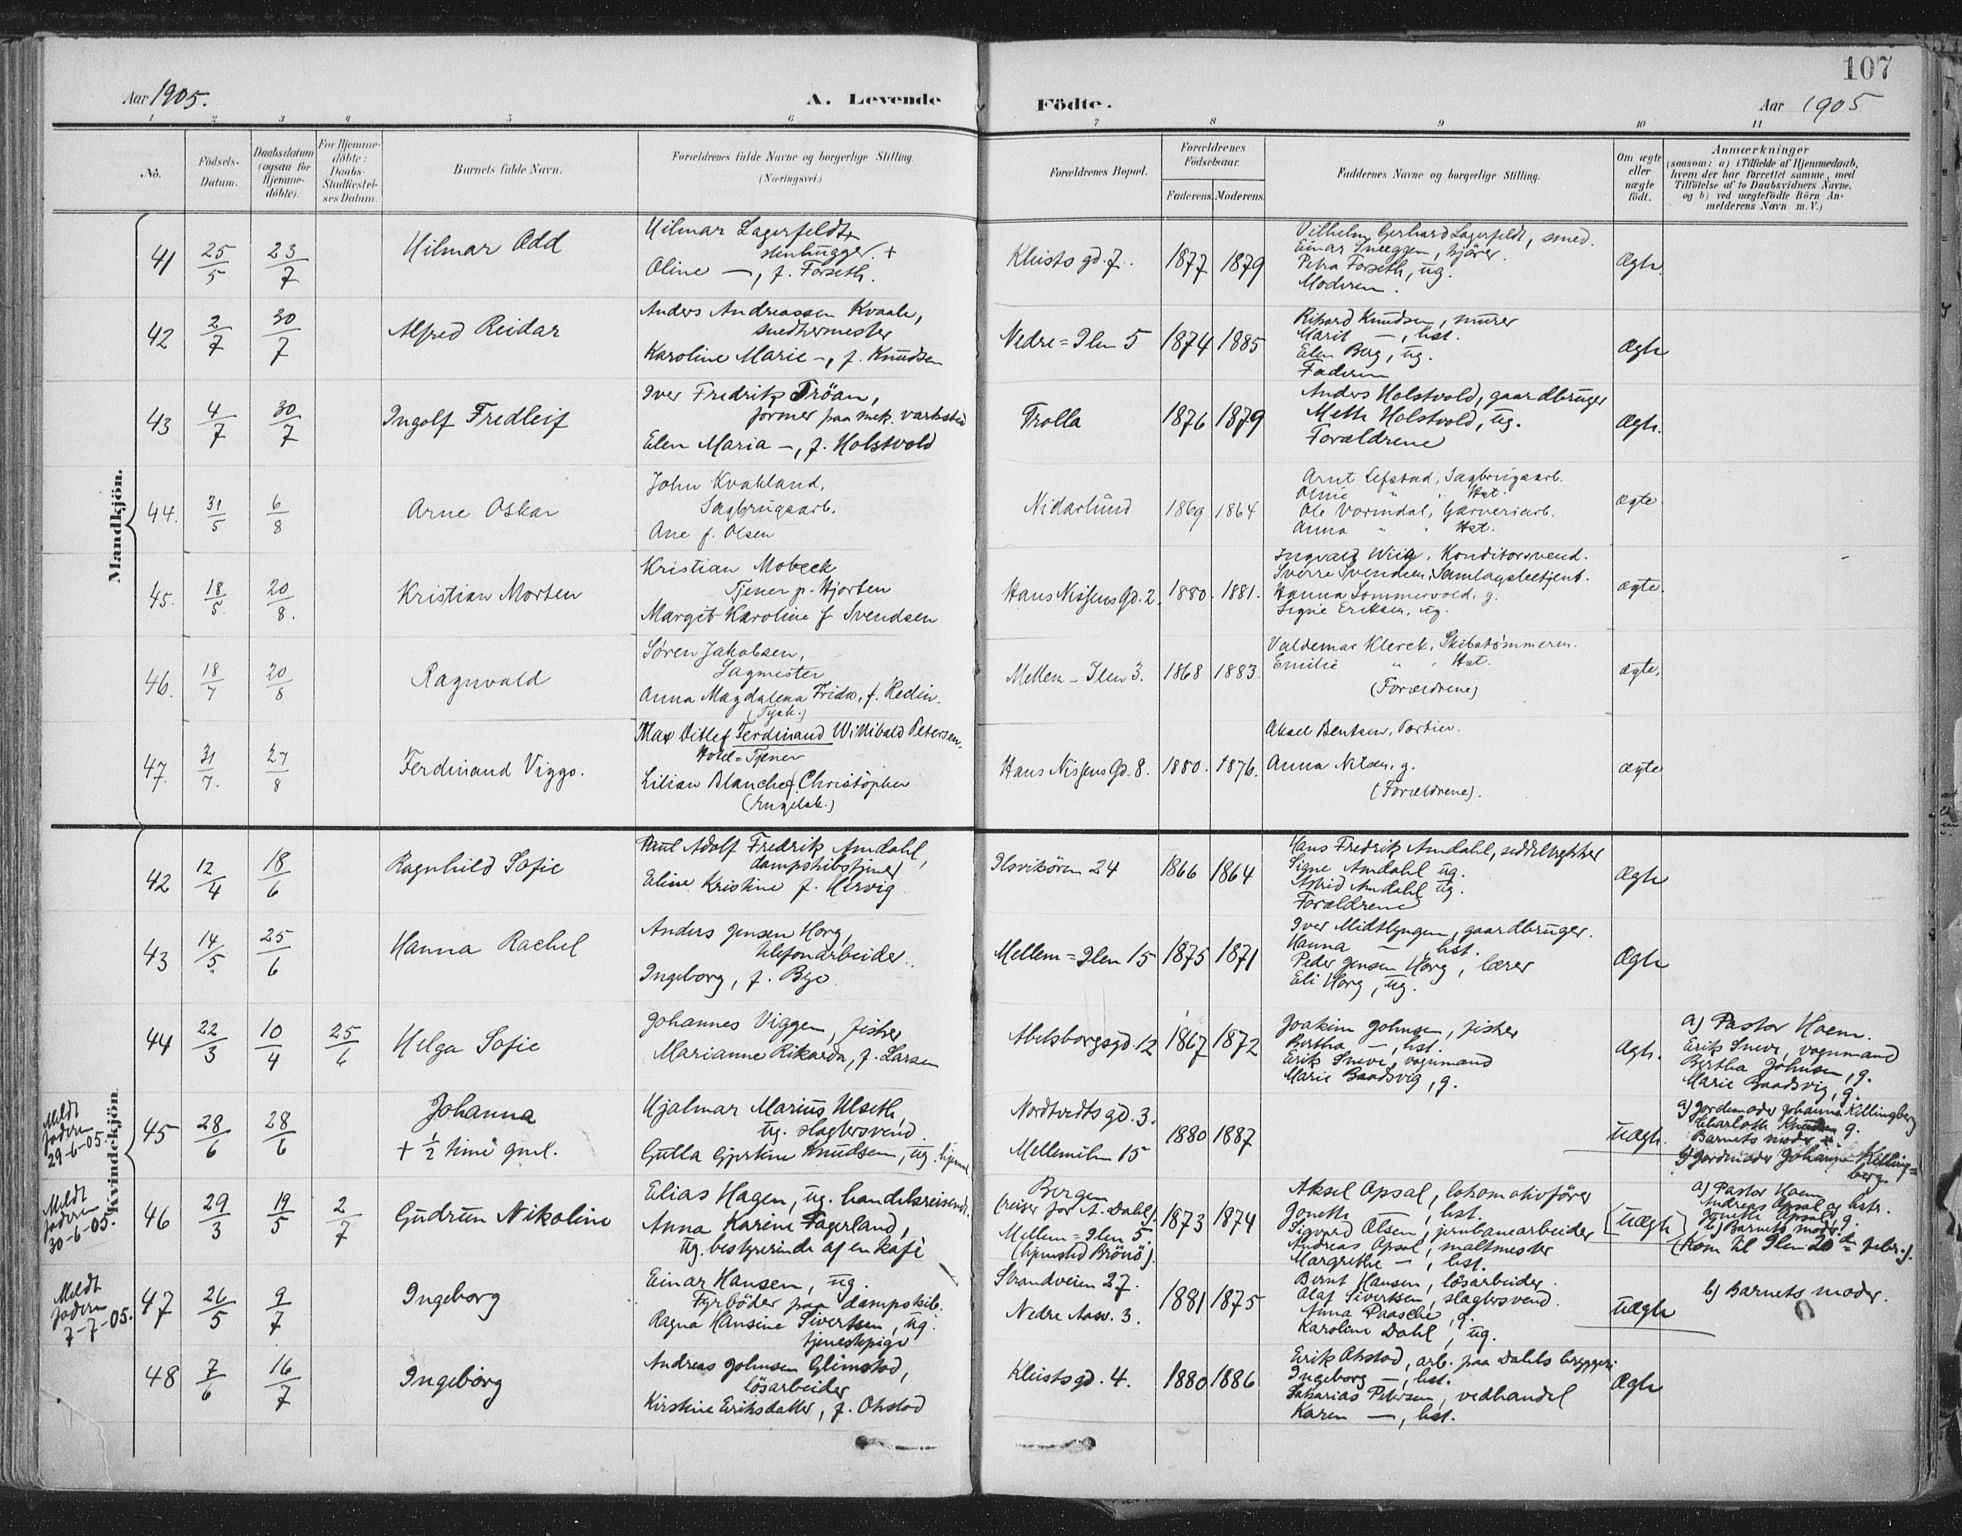 107
Aar 1905.
A. Levende
Födte.
Aar 1905
1 2 3 4 5 6 7 8 9 10 11
No.
Födsels-
Datum.
Daabsdatum
(ogsaa for
Hjemme-
döbte).
For Hjemme-
döbte:
Daabs-
Stadfæstel-
ses Datum.
Barnets fulde Navn.
Forældrenes fulde Navne og borgerlige Stilling.
(Næringsvei.)
Forældrenes Bopæl.
Forældrenes
Födselsaar.
Faderens.
Moderens.
Faddernes Navne og borgerlige Stilling.
Om ægte
eller
uægte
födt.
Anmærkninger
(saasom: a) i Tilfælde af Hjemmedaab,
hvem der har forrettet samme, med
Tilföielse af to Daabsvidners Navne,
og b) ved uægtefödte Börn An-
melderens Navn m. V.)
Mandkjön.
41
25/5
23/7
Hilmar Odd
Hilmar Lagerfeldt
stenhugger. +
Oline —, f. Forseth.
Kleists gd. 7.
1877
1879
Vilhelm Gerhard Lagerfeldt, smed.
Einar Sneeggen, kjører.
Petra Forseth, ug.
Moderen.
Ægte
42
2/7
30/7
Alfred Reidar
Anders Andreassen Kvaale,
snedkermester
Karoline Marie —, f. Knudsen
Nedre = Ilen 5
1874
1885
Rikard Knudsen, murer
Marit —, hst.
Elen Berg, ug.
Faderen
Ægte
43
4/7
30/7
Ingolf Fredleif
Iver Fredrik Tröan,
former paa mek. varksted
Elen Maria —, f. Holstvold
Trolla
1876
1879
Anders Holstvold, gaardbruger
Meth Holstvold, ug.
Forældrene
Ægte.
44.
31/5
6/8
Arne Oskar
John Kvakland,
Sagbrugsarb.
Ane f. Olsen
Nidarlund
1869
1864
Arnt Lefstad, Sagbrugsarb.
Oline " , Hst.
Ole Vormdal, Garveriarb.
Anna " " Hst.
ægte
45.
18/5.
20/8.
Kristian Morten
Kristian Mobeck
Tjener p. Hjorten
Margit Karoline f Svendsen
Hans Nissens Gd. 2.
1880.
1881.
Ingvald Wiig, Konditorsvend.
Sverre Svendsen, Samlagsbetjent.
Hanna Sommervold, g.
Signe Eriksen, ug.
ægte.
46.
18/7
20/8
Ragnvald
Sören Jakobsen,
Sagmester
Anna Magdalena Frida, f. Hedin.
(Tysk.)
Mellem - Ilen 3.
1868
1883.
Valdemar Klerck, Skibstömmerm.
Emilie " , Hst.
(Forældrene)
ægte.
47.
31/7.
27/8
Ferdinand Viggo.
Max Ditlef Ferdinand Willibald Petersen.
Hotel-Tjener
Lilian Blanche f. Christopher
(Engelsk.)
Hans Nissens Gd. 8.
1880.
1876.
Aksel Bentsen, Portier.
Anna Nilsen, g.
(Forældrene).
ægte
Kvindekjön
42
12/4
18/6
Ragnhild Sofie
Paul Adolf Fredrik Amdahl,
dampskibstjener
Eline Kristine f. Hervig
Ilsvikören 24
1866
1864
Hans Fredrik Amdahl, seddeltrykker
Signe Amdahl ug.
Astrid Amdahl ug.
Forældrene
Ægte
43
14/5
25/6
Hanna Rachel
Anders Jensen Horg,
telefonarbeider.
Ingeborg, f. Bye
Mellem = Ilen 15
1875
1871
Iver Midtlyngen, gaardbruger.
Hanna —, hst.
Peder Jensen Horg, lærer
Eli Horg, ug.
Ægte
44
22/3
10/4
25/6
Helga Sofie
Johannes Viggen, fisker
Marianne Rikarda, f. Larsen
Abelsborgsgd. 12
1867
1872
Joakim Johnsen, fisker
Bertha —, hst.
Erik Sneve, vognmand
Marie Baadsvig, g.
Ægte.
a) Pastor Hoem.
Erik Sneve, vognmand
Bertha Johnsen, g.
Marie Baadsvig, g.
Meldt
Jordm
29-6-05.
45
28/6
28/6
Johanna
+ 1/2 time gml.
Hjalmar Marius Ulseth,
ug. slagtersvend
Gulla Gjertine Knudsen, ug. hjemme
Nordtvedtsgd. 3.
Mellemilen 15
1880
1887
Uægte.
a) Jordemoder Johanna Killingberg
Charlotte Knudsen g.
Barnets moder
b) Jordmoder Johanna Killing=
berg.
Meldt
Jordm
30-6-05.
46
29/3
19/5
2/7
Gudrun Nikoline
Elias Hagen, ug. handelsreisende.
Anna Karine Fagerland,
ug. bestyrerinde af en kafé
Bergen
(reiser for A. Dahl).
Mellem = Ilen 5.
(hjemsted Brönö).
1873
1874
Aksel Opsal, lokomotivförer
Jonette —, hst.
Sigvard Olsen, jernbanearbeider
Andreas Opsal, maltmester
Margrethe —, hst.
Uægte
a) Pastor Hoem
Andreas Opsal og hstr.
Jonette Opsal, g.
b) Barnets moder
(Kom til Ilen 20de febr.).
Meldt
Jordm
7-7-05.
47
26/5
9/7
Ingeborg
Einar Hansen, ug.
Fyrböder paa dampskib.
Ragna Hansine Sivertsen, ug.
tjenestepige
Strandveien 27.
Nedre Aasv. 3.
1881
1875
Bernt Hansen, lösarbeider.
Olaf Sivertsen, slagtersvend.
Anna Paasche, g.
Karoline Dahl, ug.
Uægte
b) Barnets moder.
48
7/6
16/7
Ingeborg
Andreas Johnsen Glimstad,
lösarbeider
Kirstine Eriksdatter, f. Okstad
Kleistsgd. 4.
1880
1886
Erik Okstad, arb. paa Dahls bryggeri
Ingeborg —, hst.
Sakarias Petersen, vedhandel
Karen —, hst.
Ægte